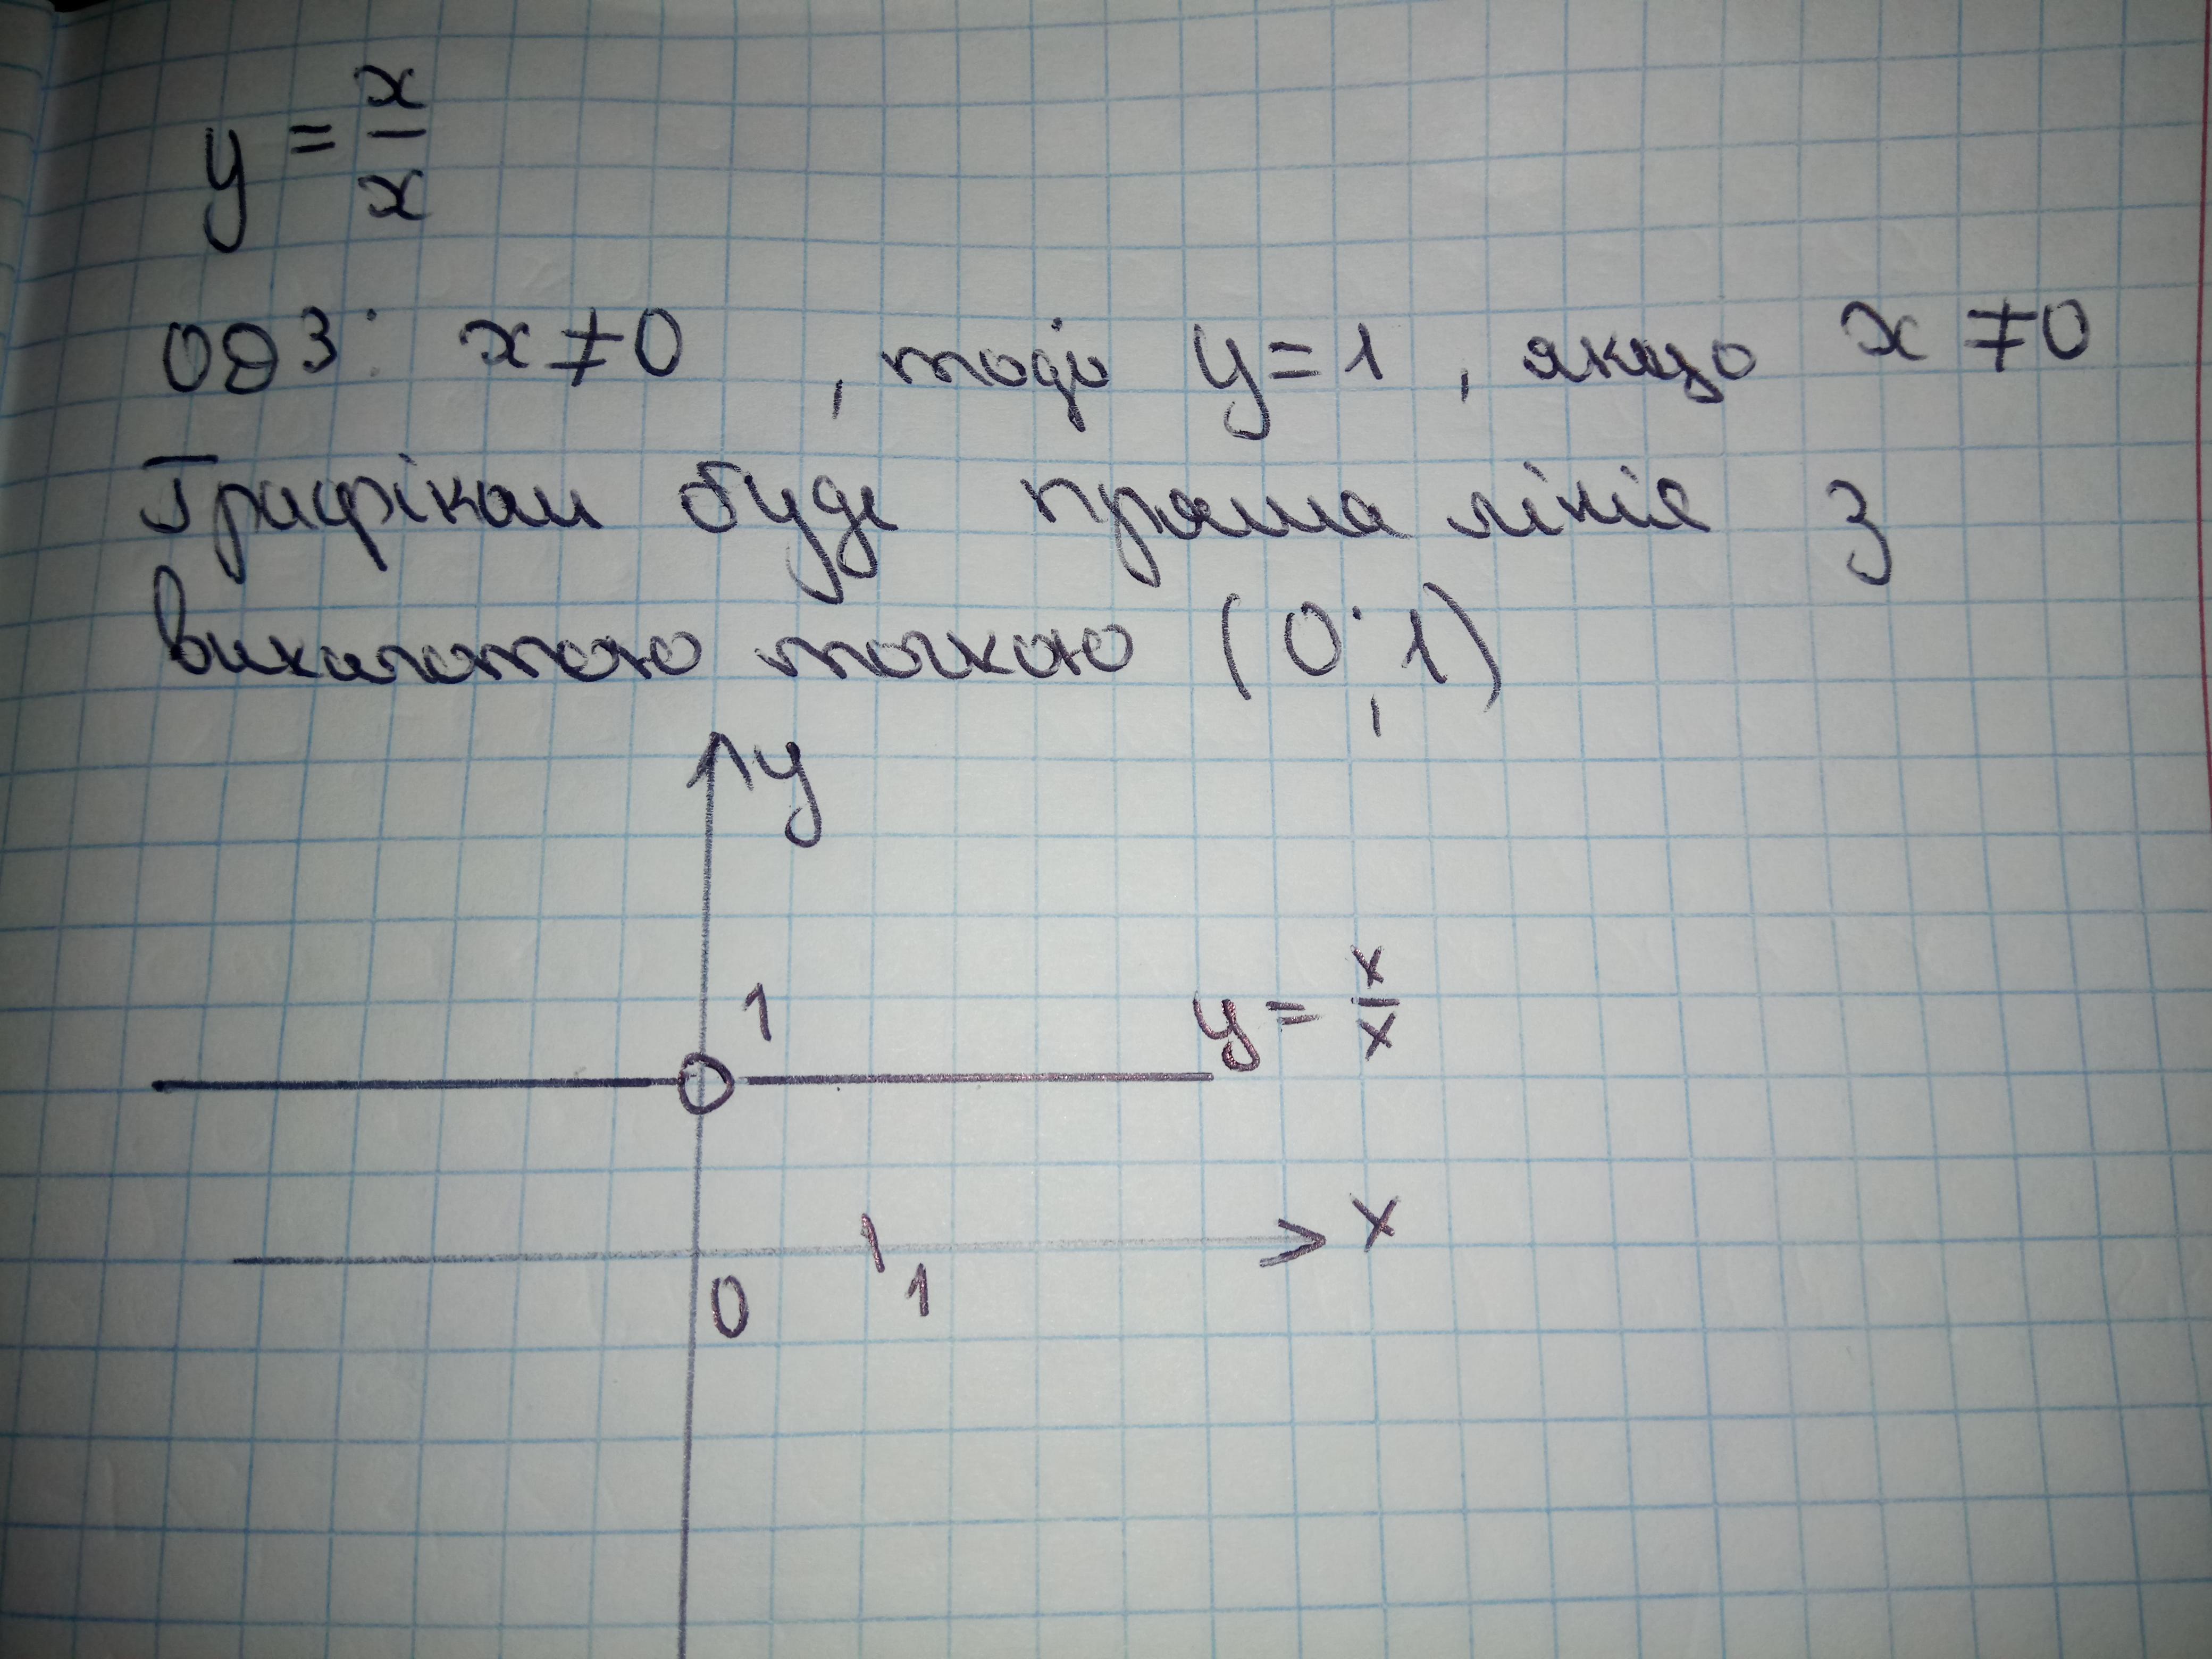 y = x/x
ОДЗ: x ≠ 0, тоді y = 1, якщо x ≠ 0
Графікам буде пряма лінія з
виколотою точкою (0; 1)
y
1
y = x/x
x
0 1